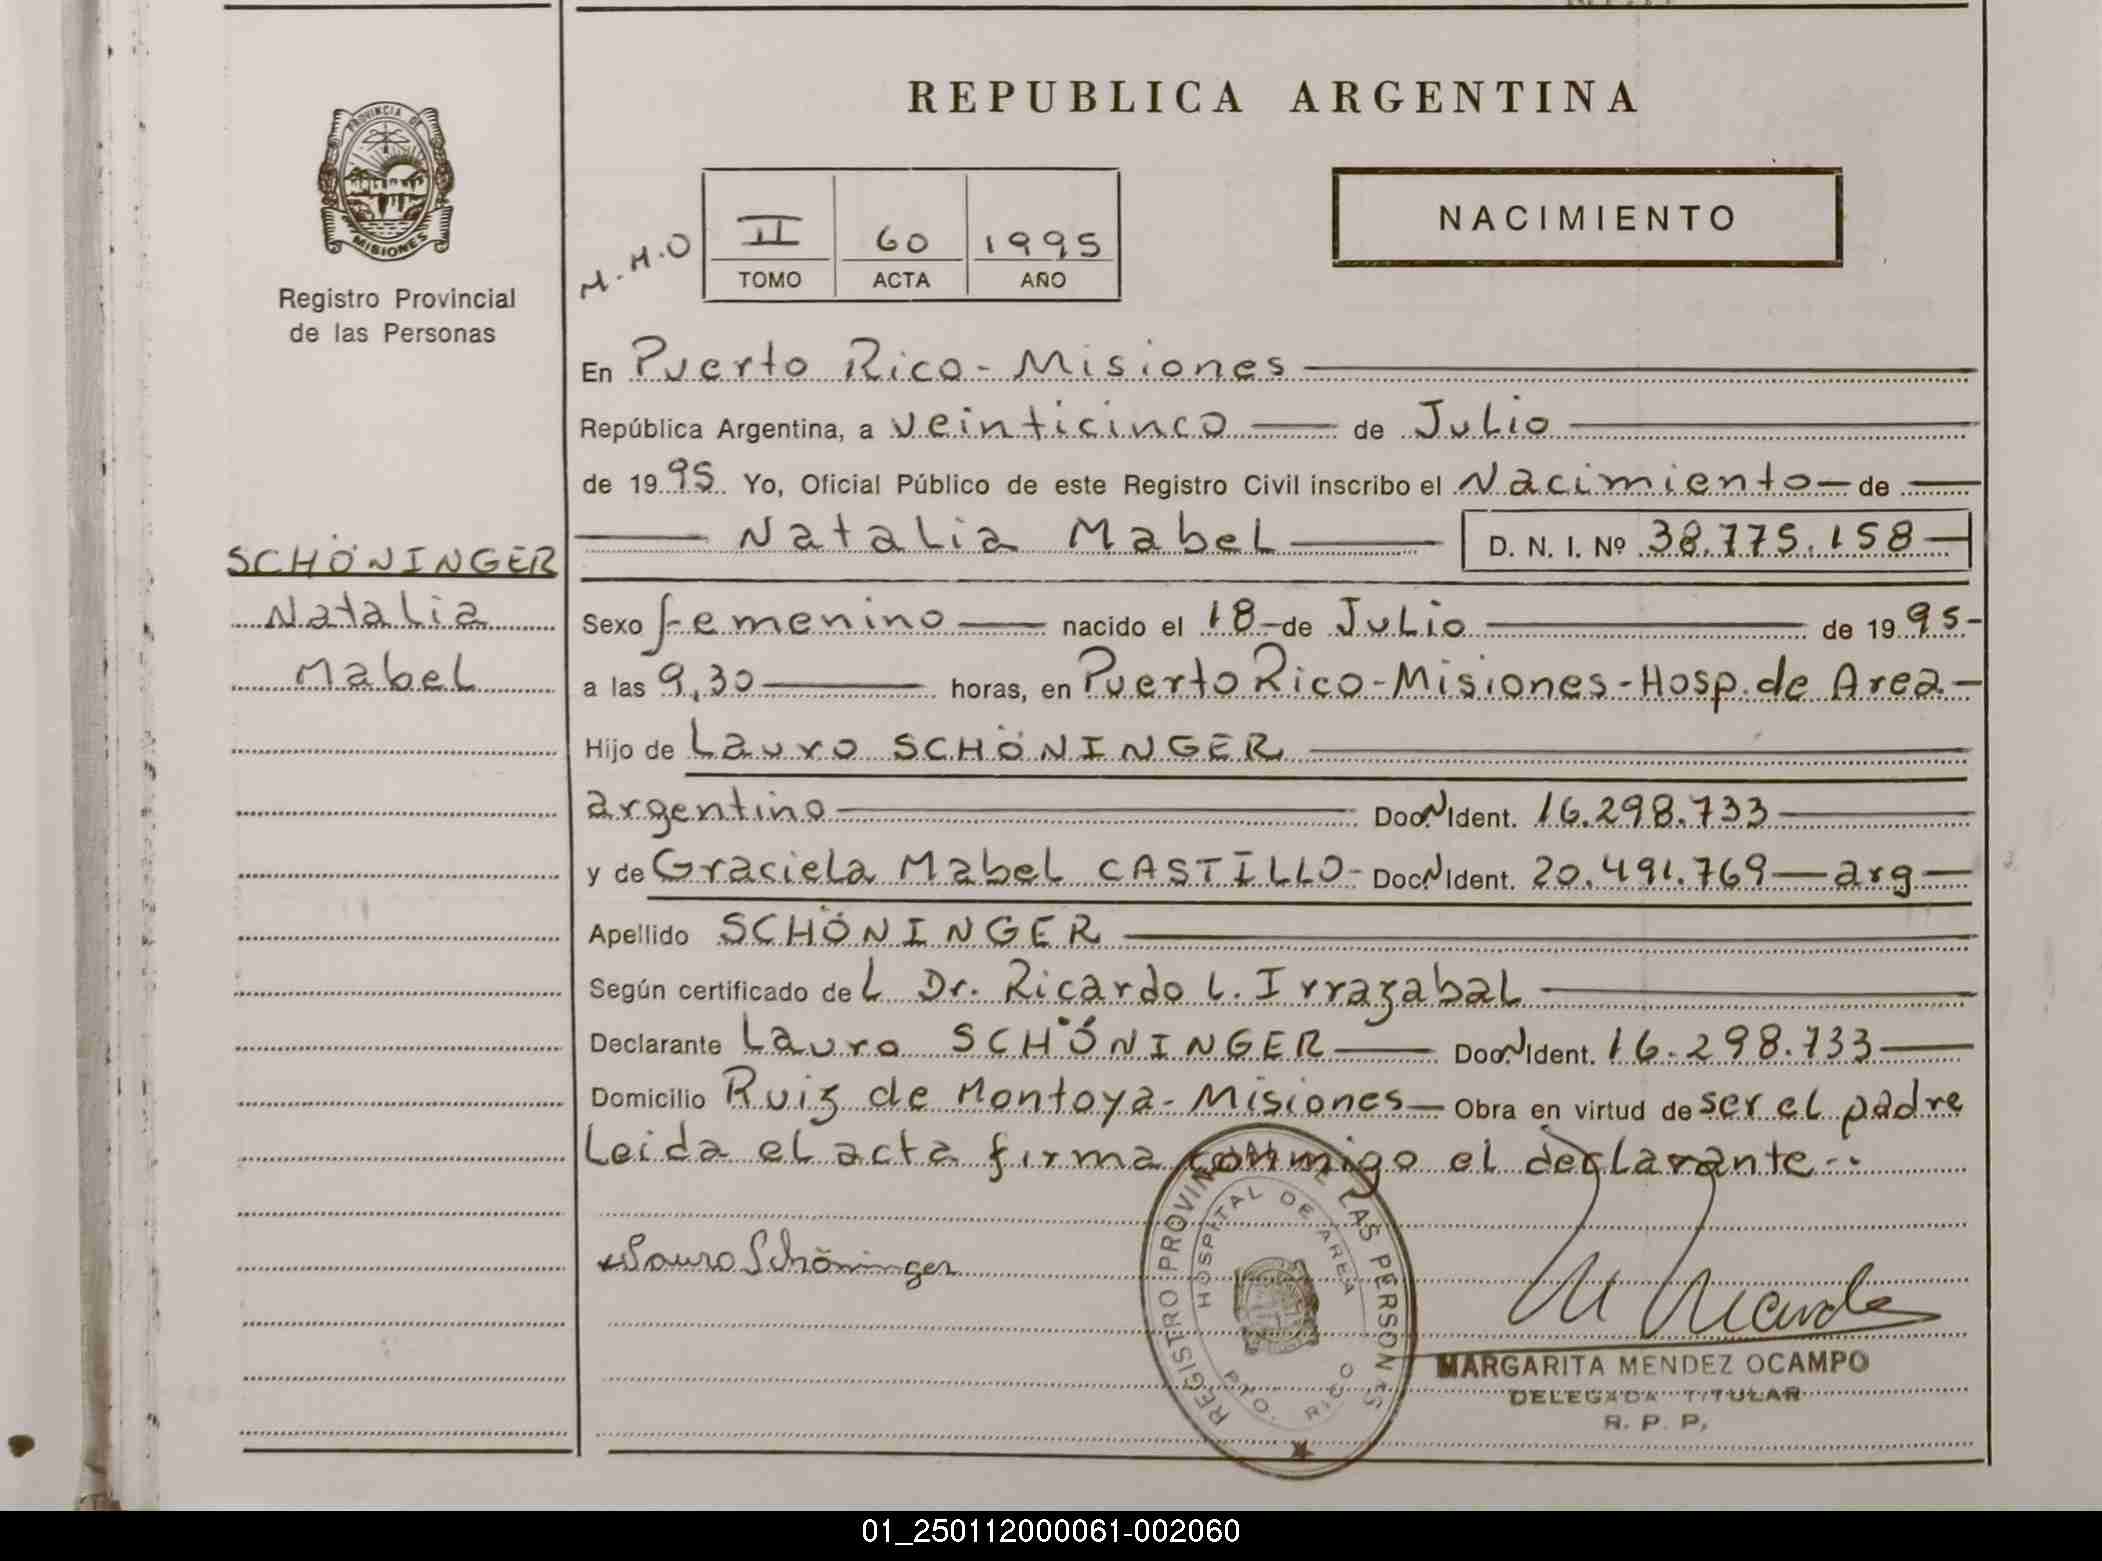 REPUBLICA ARGENTINA
PROVINCIA DE
MISIONES
Registro Provincial
de las Personas
NACIMIENTO
M.M.O
II 60 1995
TOMO ACTA AÑO
En Puerto Rico - Misiones
República Argentina, a veinticinco de Julio
de 1995. Yo, Oficial Público de este Registro Civil inscribo el Nacimiento de
Natalia Mabel D. N. I. Nº 38.775.158
SCHÖNINGER
Natalia
Mabel
Sexo femenino nacido el 18 de Julio de 1995
a las 9,30 horas, en Puerto Rico - Misiones - Hosp. de Area
Hijo de Lauro SCHÖNINGER
argentino Doc. N Ident. 16.298.733
y de Graciela Mabel CASTILLO - Doc. N Ident. 20.491.769 - arg
Apellido SCHÖNINGER
Según certificado del Dr. Ricardo L. Irrazabal
Declarante Lauro SCHÖNINGER Doc. N Ident. 16.298.733
Domicilio Ruiz de Montoya - Misiones Obra en virtud de ser el padre
Leida el acta firma conmigo el declarante..
Lauro Schöninger
REGISTRO PROVINCIAL DE LAS PERSONAS
HOSPITAL DE AREA
PTO. RICO
M Mendez
MARGARITA MENDEZ OCAMPO
DELEGADA TITULAR
R. P. P.
01_250112000061-002060